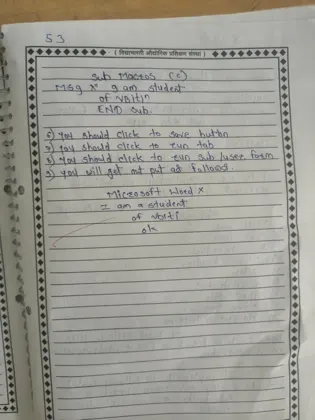 53
( निदेशालयी औद्योगिक प्रशिक्षण संस्था )
Sub Macros (c)
Msg x" I am student
of VBITI"
END Sub.
6) You should click to save button
7) You should click to run tab
8) You should click to run sub/user form
9) You will get out put as follows.
Microsoft Word x
I am a student
of vbiti
ok